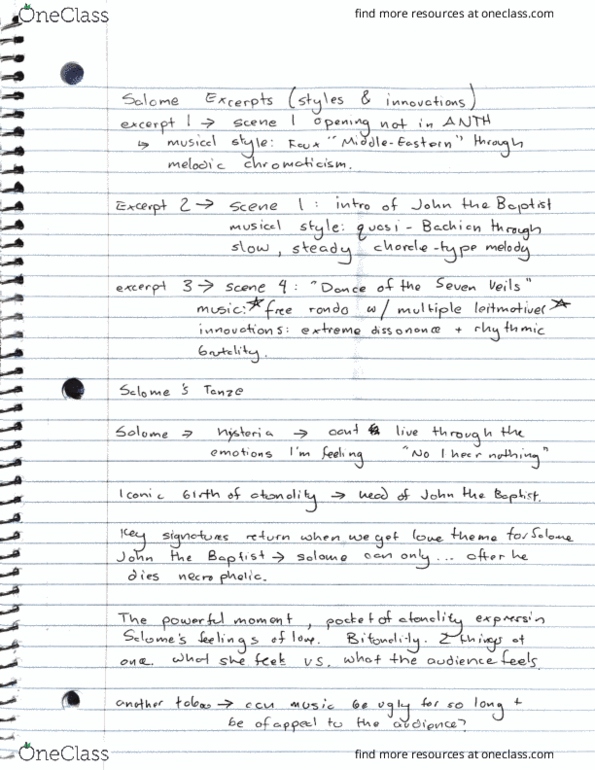 OneClass
find more resources at oneclass.com
Salome Excerpts (styles & innovations)
excerpt 1 → scene 1 opening not in ANTH
↳ musical style: Faux "Middle-Eastern" through
melodic chromaticism.
Excerpt 2 → scene 1: intro of John the Baptist
musical style: quasi-Bachian through
slow, steady chorale-type melody
excerpt 3 → scene 4: "Dance of the Seven Veils"
music: ☆free rondo w/ multiple leitmotives☆
innovations: extreme dissonance + rhythmic
brutality.
Salome's Tanze
Salome → hysteria → cant live through the
emotions I'm feeling "No I hear nothing"
Iconic birth of atonality → head of John the Baptist.
Key signatures return when we get love theme for Salome
John the Baptist → salome can only... after he
dies necrophelic.
The powerful moment, pocket of atonality expressin
Salome's feelings of love. Bitonality. 2 things at
one. what she feels vs. what the audience feels.
another taboo → can music be ugly for so long +
be of appeal to the audience?
OneClass
find more resources at oneclass.com